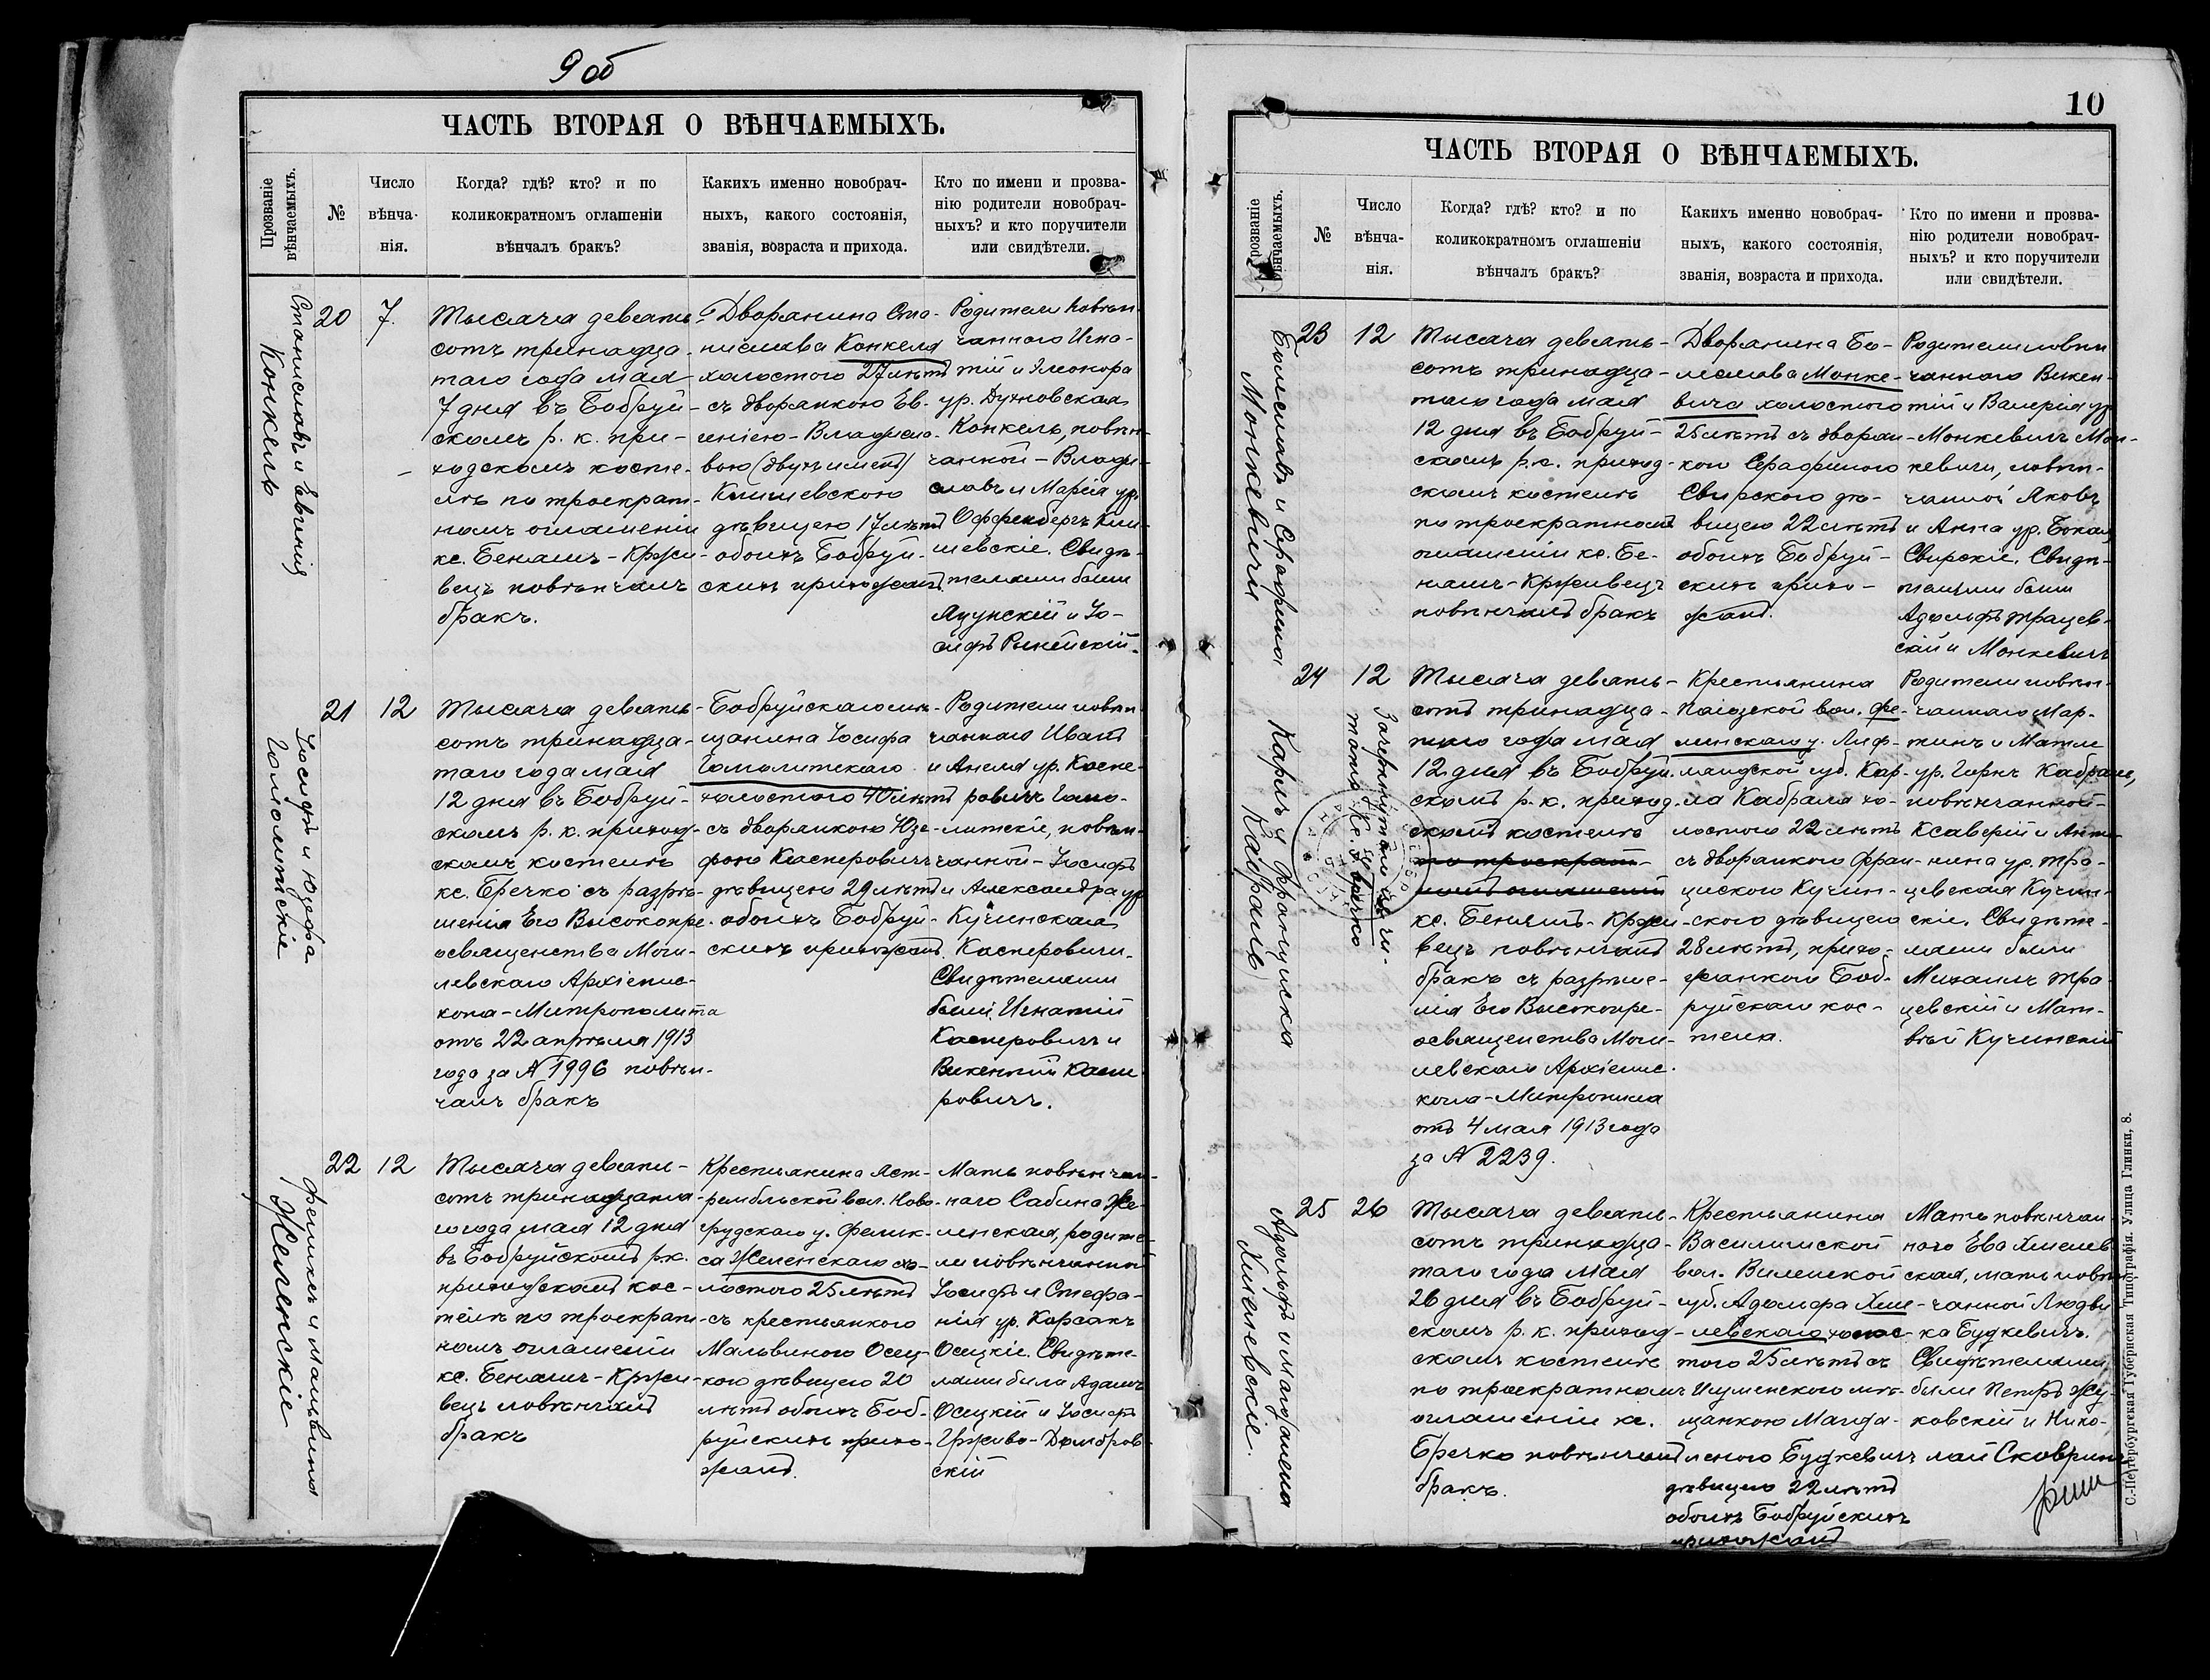 9 об
ЧАСТЬ ВТОРАЯ О ВѢНЧАЕМЫХЪ.
Прозваніе
вѣнчаемыхъ.
№
Число
вѣнча-
нія.
Когда? гдѣ? кто? и по
коликократномъ оглашеніи
вѣнчалъ бракъ?
Какихъ именно новобрач-
ныхъ, какого состоянія,
званія, возраста и прихода.
Кто по имени и прозва-
нію родители новобрач-
ныхъ? и кто поручители
или свидѣтели.
Станиславъ и Евгенія
Конкель
20
7.
Тысяча девять-
сотъ тринадца-
таго года мая
7 дня въ Бобруй-
скомъ р. к. при-
ходскомъ косте-
лѣ по троекрат-
номъ оглашеніи
кс. Беньямъ-Кржи-
вецъ повѣнчалъ
бракъ.
Дворянина Ста-
нислава Конкеля
холостого 27 лѣтъ
съ дворянкою Ев-
геніею-Владисла-
вою (двухъ именъ)
Климшевскою
дѣвицею 17 лѣтъ
обоихъ Бобруй-
скихъ прихожанъ.
Родители повѣн-
чаннаго Игна-
тій и Элеонора
ур. Духновская
Конкель, повѣн-
чанной-Влади-
славъ и Марія ур.
Оффенбергъ Кли-
шевскіе. Свидѣ-
телями были
Яцунскій и Іо-
сифъ Рынейскій.
Іосифъ и Юзефа
Гомолитскіе
21
12
Тысяча девять-
сотъ тринадца-
таго года мая
12 дня въ Бобруй-
скомъ р. к. приход-
скомъ костелѣ
кс. Гречко съ разрѣ-
шенія Его Высокопре-
освященства Моги-
левскаго Архіепис-
копа-Митрополита
отъ 22 апрѣля 1913
года за № 1996 повѣн-
чалъ бракъ
Бобруйскаго мѣ-
щанина Іосифа
Гомолитскаго
холостого 40 лѣтъ
съ дворянкою Юзе-
фою Касперовичъ
дѣвицею 29 лѣтъ
обоихъ Бобруй-
скихъ прихожанъ.
Родители повѣн-
чаннаго Иванъ
и Анеля ур. Каспе-
ровичъ Гомо-
литскіе, повѣн-
чанной-Іосифъ
и Александра ур.
Кучинская
Касперовичи.
Свидѣтелями
были: Игнатій
Касперовичъ и
Викентій Каспе-
ровичъ.
Феликсъ и Мальвина
Желенскіе
22
12
Тысяча девять-
сотъ тринадцата-
го года мая 12 дня
въ Бобруйскомъ р.к.
приходскомъ кос-
телѣ по троекрат-
номъ оглашеніи
кс. Беньямъ-Кржи-
вецъ повѣнчалъ
бракъ
Крестьянина Яст-
рембльской вол. Ново-
грудскаго у. Фелик-
са Желенскаго хо-
лостого 25 лѣтъ
съ крестьянкою
Мальвиною Осец-
кою дѣвицею 20
лѣтъ обоихъ Боб-
руйскихъ прихо-
жанъ.
Мать повѣнчан-
наго Сабина Же-
ленская, родите-
ли повѣнчанной
Іосифъ и Стефа-
нія ур. Корсакъ
Осецкіе. Свидѣте-
лями были Адамъ
Осецкій и Іосифъ
Грживо-Домбров-
скій
10
ЧАСТЬ ВТОРАЯ О ВѢНЧАЕМЫХЪ.
Прозваніе
вѣнчаемыхъ.
№
Число
вѣнча-
нія.
Когда? гдѣ? кто? и по
коликократномъ оглашеніи
вѣнчалъ бракъ?
Какихъ именно новобрач-
ныхъ, какого состоянія,
званія, возраста и прихода.
Кто по имени и прозва-
нію родители новобрач-
ныхъ? и кто поручители
или свидѣтели.
Болеславъ и Серафина
Монкевичи
23
12
Тысяча девять-
сотъ тринадца-
таго года мая
12 дня въ Бобруй-
скомъ р.к. приход-
скомъ костелѣ
по троекратномъ
оглашеніи кс. Бе-
ньямъ-Кржи​вецъ
повѣнчалъ бракъ
Дворянина Бо-
леслава Монке-
вича холостого
25 лѣтъ съ дворян-
кою Серафиною
Свирскою дѣ-
вицею 22 лѣтъ
обоихъ Бобруй-
скихъ прихо-
жанъ.
Родители повѣн-
чаннаго Викен-
тій и Валерія ур.
Монкевичъ Мон-
кевичи, повѣн-
чанной Яковъ
и Анна ур.
Свирскіе. Свидѣ-
телями были
Адольфъ Трацев-
скій и Монкевичъ
Карлъ и Франциска
Кабраль
24
12
Зачеркнутыхъ чи-
татъ Кс. Гречко
Тысяча девять-
сотъ тринадца-
таго года мая
12 дня въ Бобруй-
скомъ р. к. приход-
скомъ костелѣ
по троекрат-
номъ оглашеніи
кс. Беньямъ-Кржи-
вецъ повѣнчалъ
бракъ съ разрѣше-
нія Его Высокопре-
освященства Моги-
левскаго Архіепис-
копа-Митрополита
отъ 4 мая 1913 года
за № 2239.
Крестьянина
вол. Фе-
линскаго у. Лиф-
ляндской губ. Кар-
ла Кабраля хо-
лостого 22 лѣтъ
съ дворянкою Фран-
цискою Кучин-
скою дѣвицею
28 лѣтъ, прихо-
жанкою Боб-
руйскаго кос-
тела.
Родители повѣн-
чаннаго Мар-
тинъ и Матле
ур. Горнъ Кабрале,
повѣнчанной-
Ксаверій и Анто-
нина ур. Тра-
цевская Кучин-
скіе. Свидѣте-
лями были
Михаилъ Тра-
цевскій и Мат-
вѣй Кучинскій
Адольфъ и Магдалена
Хмелевскіе.
25
26
Тысяча девять-
сотъ тринадца-
таго года мая
26 дня въ Бобруй-
скомъ р. к. приход-
скомъ костелѣ
по троекратномъ
оглашеніи кс.
Гречко повѣнчалъ
бракъ.
Крестьянина
Василишской
вол. Виленской
губ. Адольфа Хме-
левскаго холос-
того 25 лѣтъ съ
Игуменскою мѣ-
щанкою Магда-
леною Будкевичъ
дѣвицею 22 лѣтъ
обоихъ Бобруйскихъ
прихожанъ
Мать повѣнчан-
наго Ева Хмелев-
ская, мать повѣн-
чанной Людви-
ка Будкевичъ.
Свидѣтелями
были Петръ Жу-
ковскій и Нико-
лай Скавринъ
С.-Петербургская Губернская Типографія. Улица Глинки, 8.